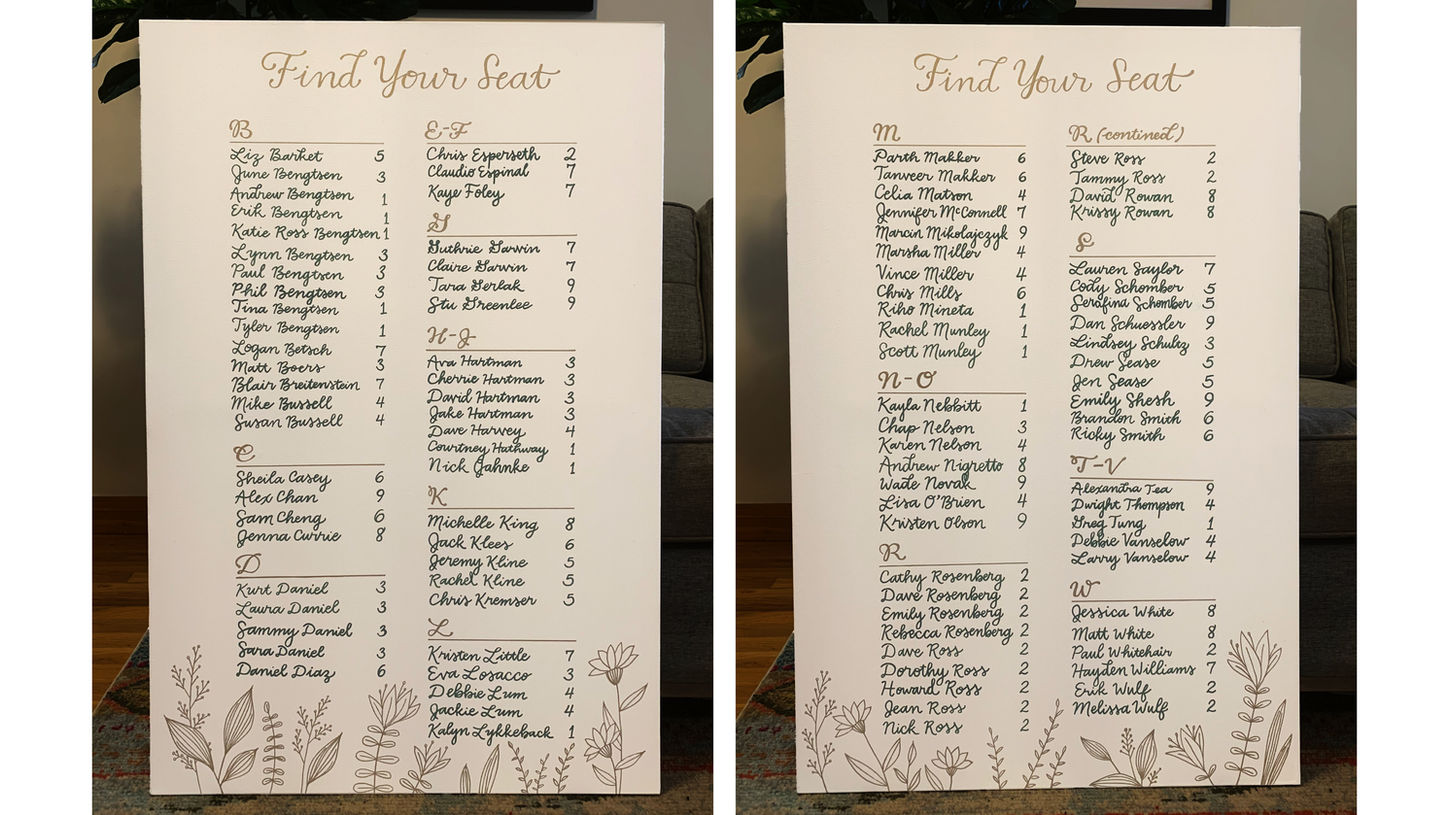 Find Your Seat
B
Liz Barket 5
June Bengtsen 3
Andrew Bengtsen 1
Erik Bengtsen 1
Katie Ross Bengtsen 1
Lynn Bengtsen 3
Paul Bengtsen 3
Phil Bengtsen 3
Tina Bengtsen 1
Tyler Bengtsen 1
Logan Betsch 7
Matt Boers 3
Blair Breitenstein 7
Mike Bussell 4
Susan Bussell 4
C
Sheila Casey 6
Alex Chan 9
Sam Cheng 6
Jenna Currie 8
D
Kurt Daniel 3
Laura Daniel 3
Sammy Daniel 3
Sara Daniel 3
Daniel Diaz 6
E-F
Chris Esperseth 2
Claudio Espinal 7
Kaye Foley 7
G
Guthrie Garwin 7
Claire Garwin 7
Tara Gerlak 9
Stu Greenlee 9
H-J
Ava Hartman 3
Cherrie Hartman 3
David Hartman 3
Jake Hartman 3
Dave Harvey 4
Courtney Hathway 1
Nick Jahnke 1
K
Michelle King 8
Jack Klees 6
Jeremy Kline 5
Rachel Kline 5
Chris Kremser 5
L
Kristen Little 7
Eva Losacco 3
Debbie Lum 4
Jackie Lum 4
Kalyn Lykkeback 1
Find Your Seat
M
Parth Makker 6
Tanveer Makker 6
Celia Matson 4
Jennifer McConnell 7
Marcin Mikolajczyk 9
Marsha Miller 4
Vince Miller 4
Chris Mills 6
Riho Mineta 1
Rachel Munley 1
Scott Munley 1
N-O
Kayla Nebbitt 1
Chap Nelson 3
Karen Nelson 4
Andrew Nigretto 8
Wade Novak 9
Lisa O'Brien 4
Kristen Olson 9
R
Cathy Rosenberg 2
Dave Rosenberg 2
Emily Rosenberg 2
Rebecca Rosenberg 2
Dave Ross 2
Dorothy Ross 2
Howard Ross 2
Jean Ross 2
Nick Ross 2
R (contined)
Steve Ross 2
Tammy Ross 2
David Rowan 8
Krissy Rowan 8
S
Lauren Saylor 7
Cody Schomber 5
Serafina Schomber 5
Dan Schuessler 9
Lindsey Schultz 3
Drew Sease 5
Jen Sease 5
Emily Shesh 9
Brandon Smith 6
Ricky Smith 6
T-V
Alexandra Tea 9
Dwight Thompson 4
Greg Tung 1
Debbie Vanselow 4
Larry Vanselow 4
W
Jessica White 8
Matt White 8
Paul Whitehair 2
Hayden Williams 7
Erik Wulf 2
Melissa Wulf 2